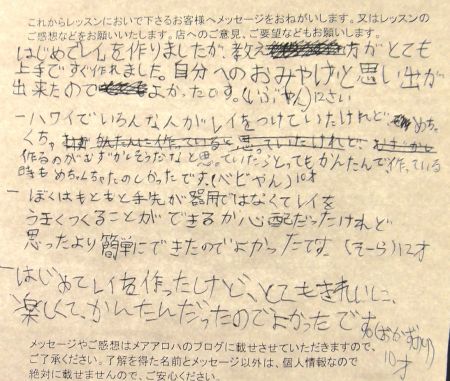 これからレッスンにおいで下さるお客様へメッセージをおねがいします。又はレッスンの
ご感想などをお願いいたします。店へのご意見、ご要望などもお願いします。
はじめてレイを作りましたが、教え方がとても
上手ですぐ作れました。自分へのおみやげと思い出が
出来たのでよかったです。(いぶやん)12さい
ーハワイでいろんな人がレイをつけていたけれど めちゃ
くちゃ
作るのがむずかしそうだなと思っていたら、とってもかんたんで作っている
時もめちゃんちゃたのしかったです。(べビやん)10才
ーぼくはもともと手先が器用ではなくてレイを
うまくつくることができるか心配だったけれど
思ったより簡単にできたのでよかったです (そーら)12才
ーはじめてレイを作ったしけど、とてもきれいに、
楽しくて、かんたんだったのでよかったです
10才
メッセージやご感想はメアアロハのブログに載せさせていただきますので、
ご了承ください。了解を得た名前とメッセージ以外は、個人情報なので
絶対に載せませんので、ご安心ください。